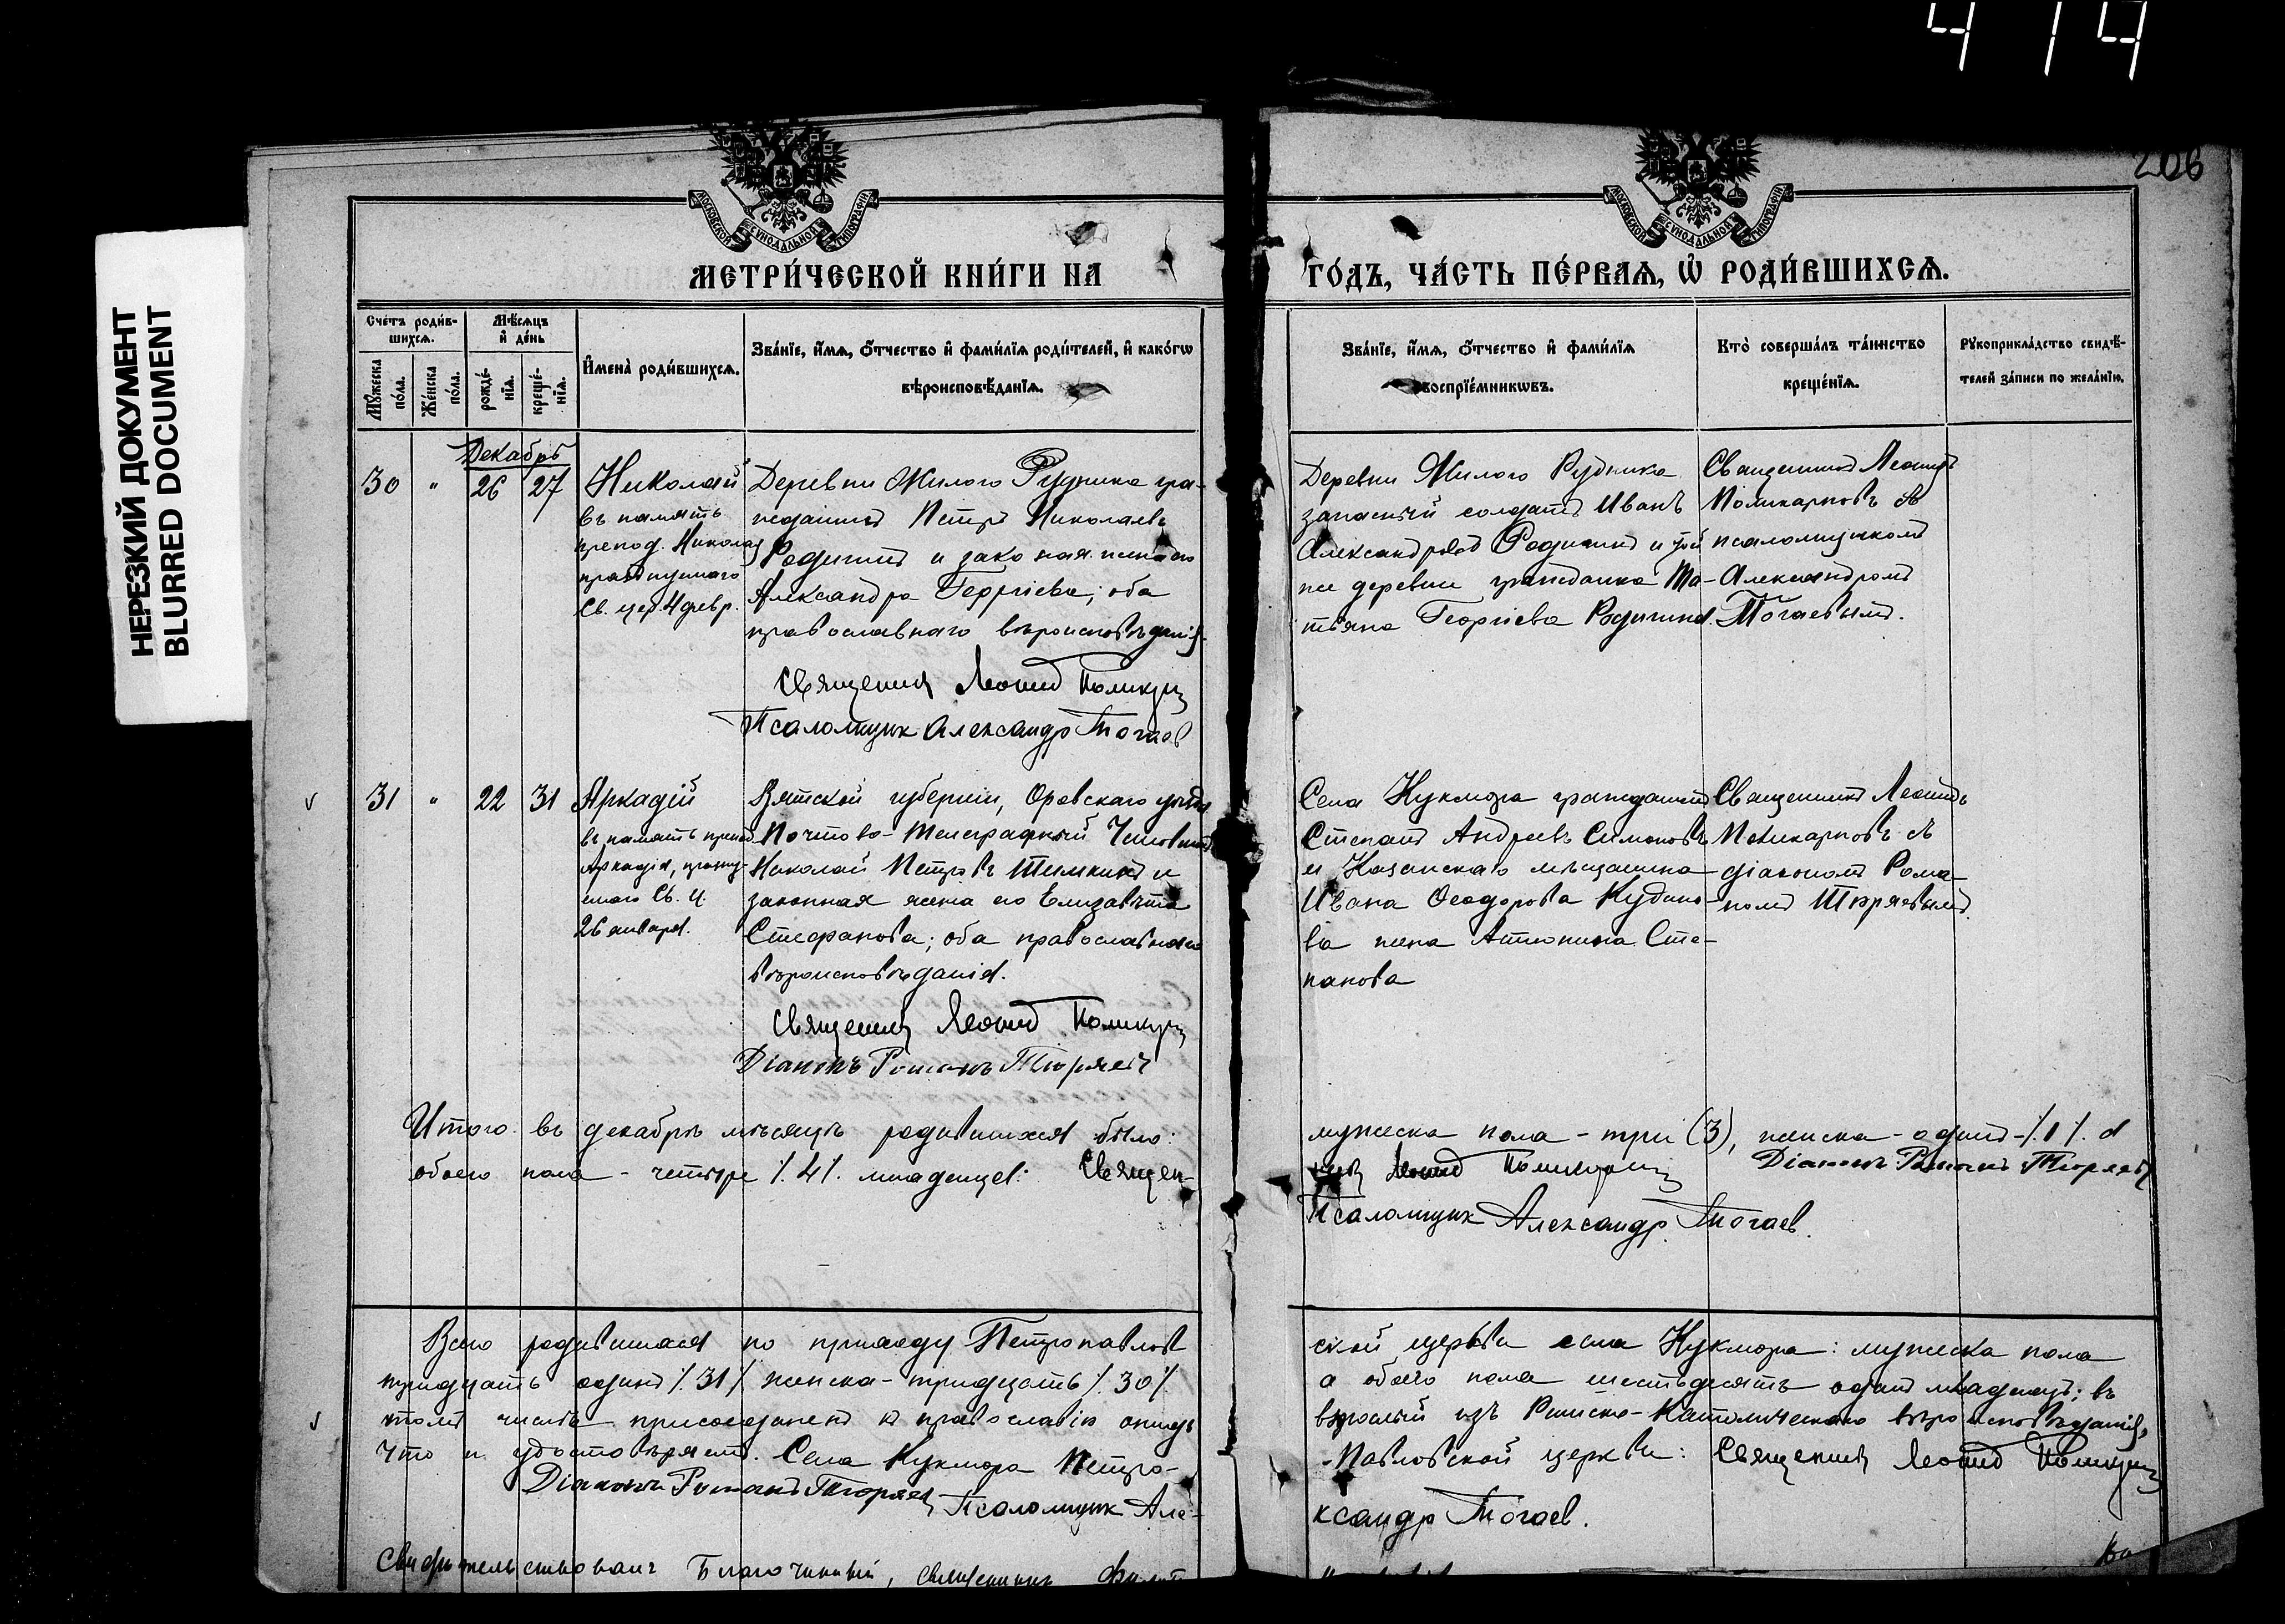 414
206
НЕРЕЗКИЙ ДОКУМЕНТ
BLURRED DOCUMENT
МОСКОВСКОЙ СѴНОДАЛЬНОЙ ТИПОГРАФІИ
МОСКОВСКОЙ СѴНОДАЛЬНОЙ ТИПОГРАФІИ
МЕТРИ́ЧЕСКОЙ КНИ́ГИ НА
ГО́ДЪ, ЧА́СТЬ ПЕ́РВАѦ, Ѡ҆ РОДИ́ВШИХСѦ.
Сче́тъ роди́в-
шихсѧ.
Мꙋ́жеска по́ла.
Же́нска по́ла.
Мѣ́сѧцъ
и҆ де́нь
рожде́-
нїѧ.
креще́-
нїѧ.
И҆мена̀ роди́вшихсѧ.
Зва́нїе, и҆́мѧ, ѻ҆́тчество и҆ фами́лїѧ роди́телей, и҆ како́гѡ
вѣроисповѣ́данїѧ.
Зва́нїе, и҆́мѧ, ѻ҆́тчество и҆ фами́лїѧ
воспрїе́мникѡвъ.
Кто̀ соверша́лъ та́инство
креще́нїѧ.
Рꙋкоприкла́дство свидѣ́-
телей за́писи по жела́нїю.
Декабрь
30 " 26 27
Николай
въ память
препод. Николая
празднуемаго
Св. цер. 4 февр.
Деревни Жилого Рудника гра-
жданинъ Петръ Николаевъ
Родигинъ и законная жена его
Александра Георгіева; оба
православнаго вѣроисповѣданія.
Священник Леонид Поликарп
Псаломщик Александр Тогаев
Деревни Жилого Рудника
запасный солдатъ Иванъ
Александровъ Родигинъ и той
же деревни гражданка Та-
тьяна Георгіева Родигина.
Священникъ Леонидъ
Поликарповъ съ
псаломщикомъ
Александромъ
Тогаевымъ.
31 " 22 31
Аркадій
въ память препод.
Аркадія, праздну-
емаго Св. Ц.
26 января.
Вятской губерніи, Орловскаго уѣзда
Почтово-Телеграфный Чиновникъ
Николай Петровъ Шишкинъ и
законная жена его Елизавета
Стефанова; оба православнаго
вѣроисповѣданія.
Священник Леонид Поликарп
Діаконъ Романъ Тюряевъ
Села Кукмора гражданинъ
Степанъ Андреевъ Симоновъ
и Казанскаго мѣщанина
Ивана Ѳеодорова Кудино-
ва жена Антонина Сте-
панова
Священникъ Леонидъ
Поликарповъ съ
діакономъ Рома-
номъ Тюряевымъ.
Итого въ декабрѣ мѣсяцѣ родившихся было:
мужеска пола - три (3), женска - одинъ - /.1/. а
обоего пола - четыре /.4/. младенца: Священ-
ник Леонид Поликарп Діаконъ Романъ Тюряевъ
Псаломщик Александр Тогаев.
Всего родившихся по приходу Петропавлов
ской церкви села Кукмора: мужеска пола
тридцать одинъ /.31/. женска - тридцать /.30/.
а обоего пола шестьдесятъ одинъ младенецъ; въ
томъ числѣ присоединенъ къ православію одинъ
взрослый изъ Римско-Католическаго вѣроисповѣданія,
что и удостовѣряемъ. Села Кукмора Петро-
-Павловской церкви: Священник Леонид Поликарп
Діаконъ Романъ Тюряевъ Псаломщик Але-
ксандр Тогаев.
Свидѣтельствовалъ Благочинный, священникъ